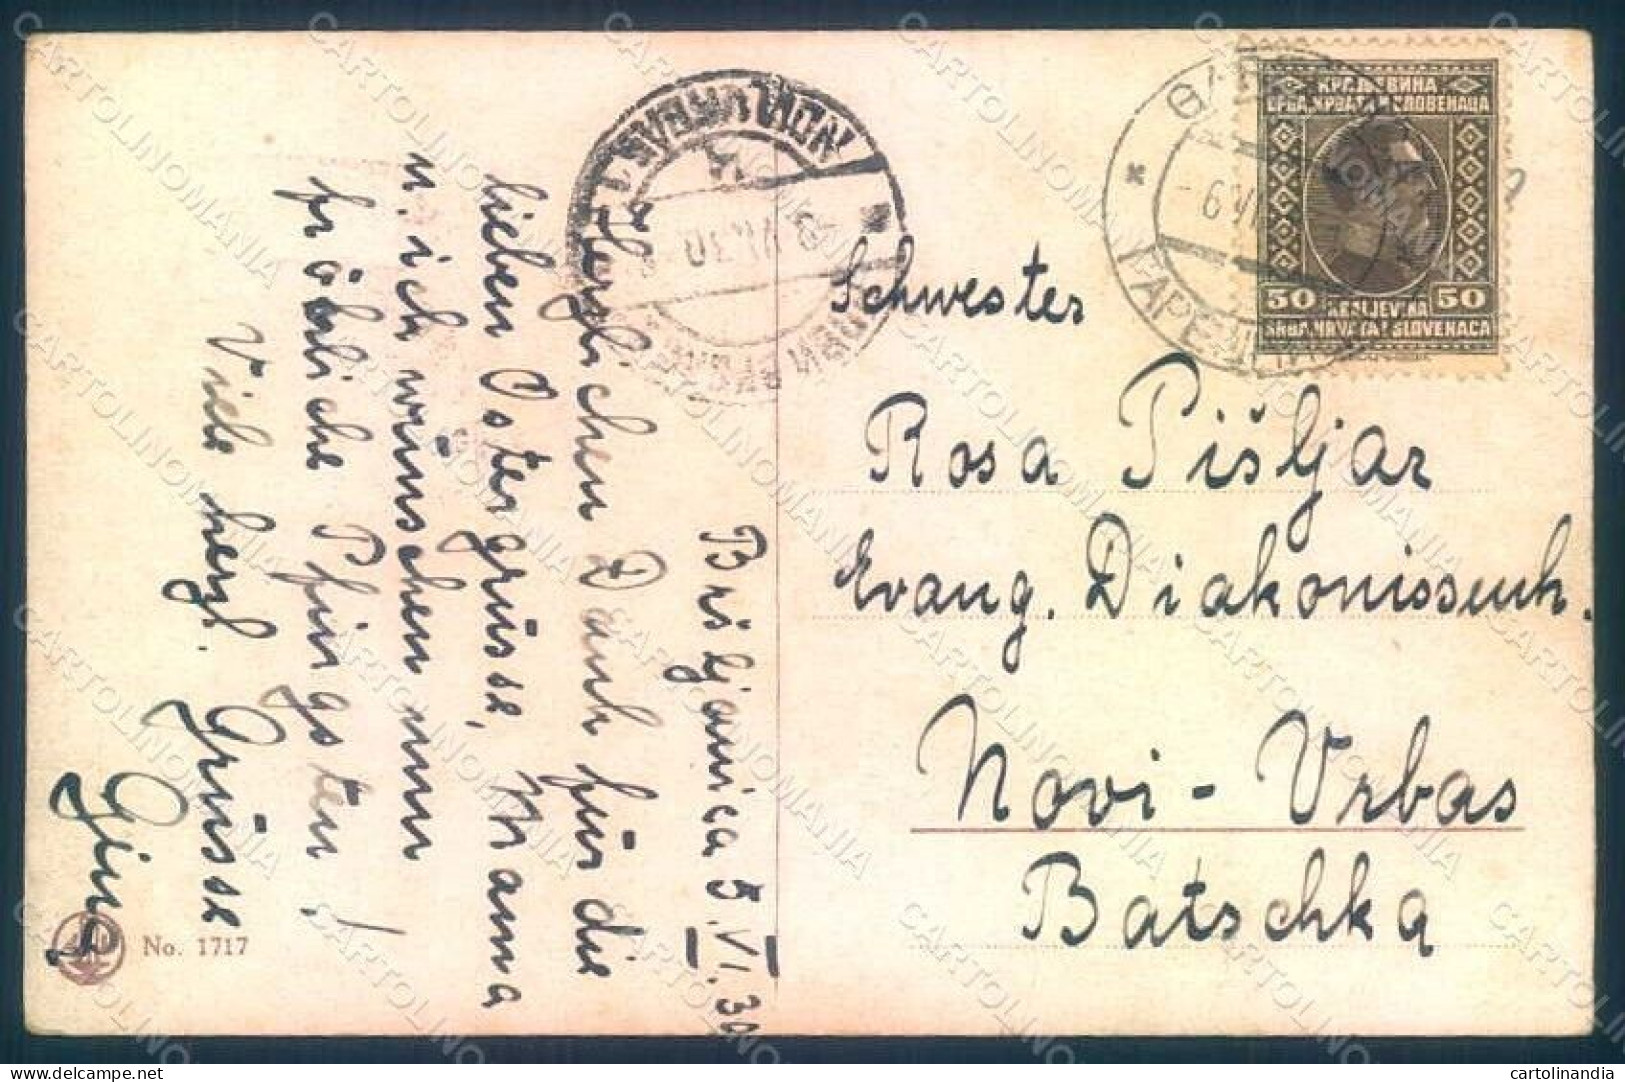 Bršljanica 5.VI.30
Herzlichen Dank für die
lieben Ostergrüsse, Mama
u. ich wünschen nun
fröhliche Pfingsten!
Viele herzl. Grüsse
Gina
No. 1717
Schwester
Rosa Pišljar
Evang. Diakonissenh.
Novi-Vrbas
Batschka
КРАЉЕВИНА
СРБА, ХРВАТА И СЛОВЕНАЦА
50 KRALJEVINA 50
SRBA, HRVATA I SLOVENACA
NOVI VRBAS
VI.30
-6.VI
CARTOLINOMANIA
delcampe.net
cartolinandia